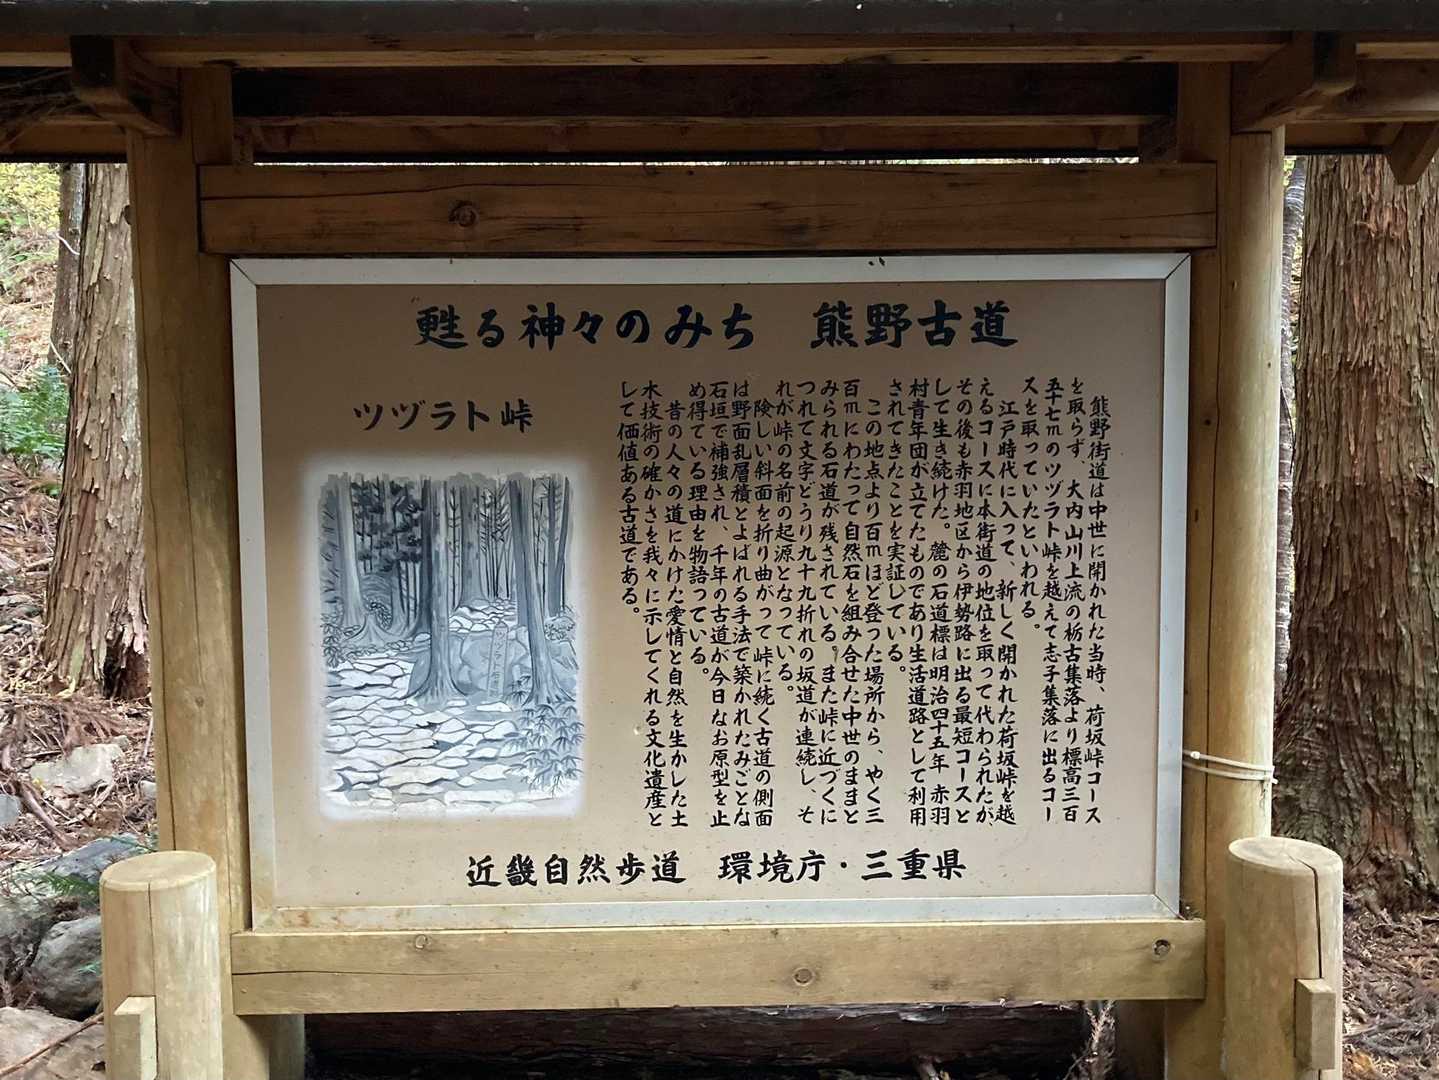 甦る神々のみち　熊野古道
ツヅラト峠
熊野街道は中世に開かれた当時、荷坂峠コース
を取らず、大内山川上流の栃古集落より標高三百
五十七mのツヅラト峠を越えて志子集落に出るコー
スを取っていたといわれる。
江戸時代に入って、新しく開かれた荷坂峠を越
えるコースに本街道の地位を取って代わられたが、
その後も赤羽地区から伊勢路に出る最短コースと
して生き続けた。麓の石道標は明治四十五年赤羽
村青年団が立てたものであり生活道路として利用
されてきたことを実証している。
この地点より百mほど登った場所から、やく三
百mにわたって自然石を組み合せた中世のままと
みられる石道が残されている。また峠に近づくに
つれて文字どうり九十九折れの坂道が連続し、そ
れが峠の名前の起源となっている。
険しい斜面を折り曲がって峠に続く古道の側面
は野面乱層積とよばれる手法で築かれたみごとな
石垣で補強され、千年の古道が今日なお原型を止
め得ている理由を物語っている。
昔の人々の道にかけた愛情と自然を生かした土
木技術の確かさを我々に示してくれる文化遺産と
して価値ある古道である。
近畿自然歩道　環境庁・三重県